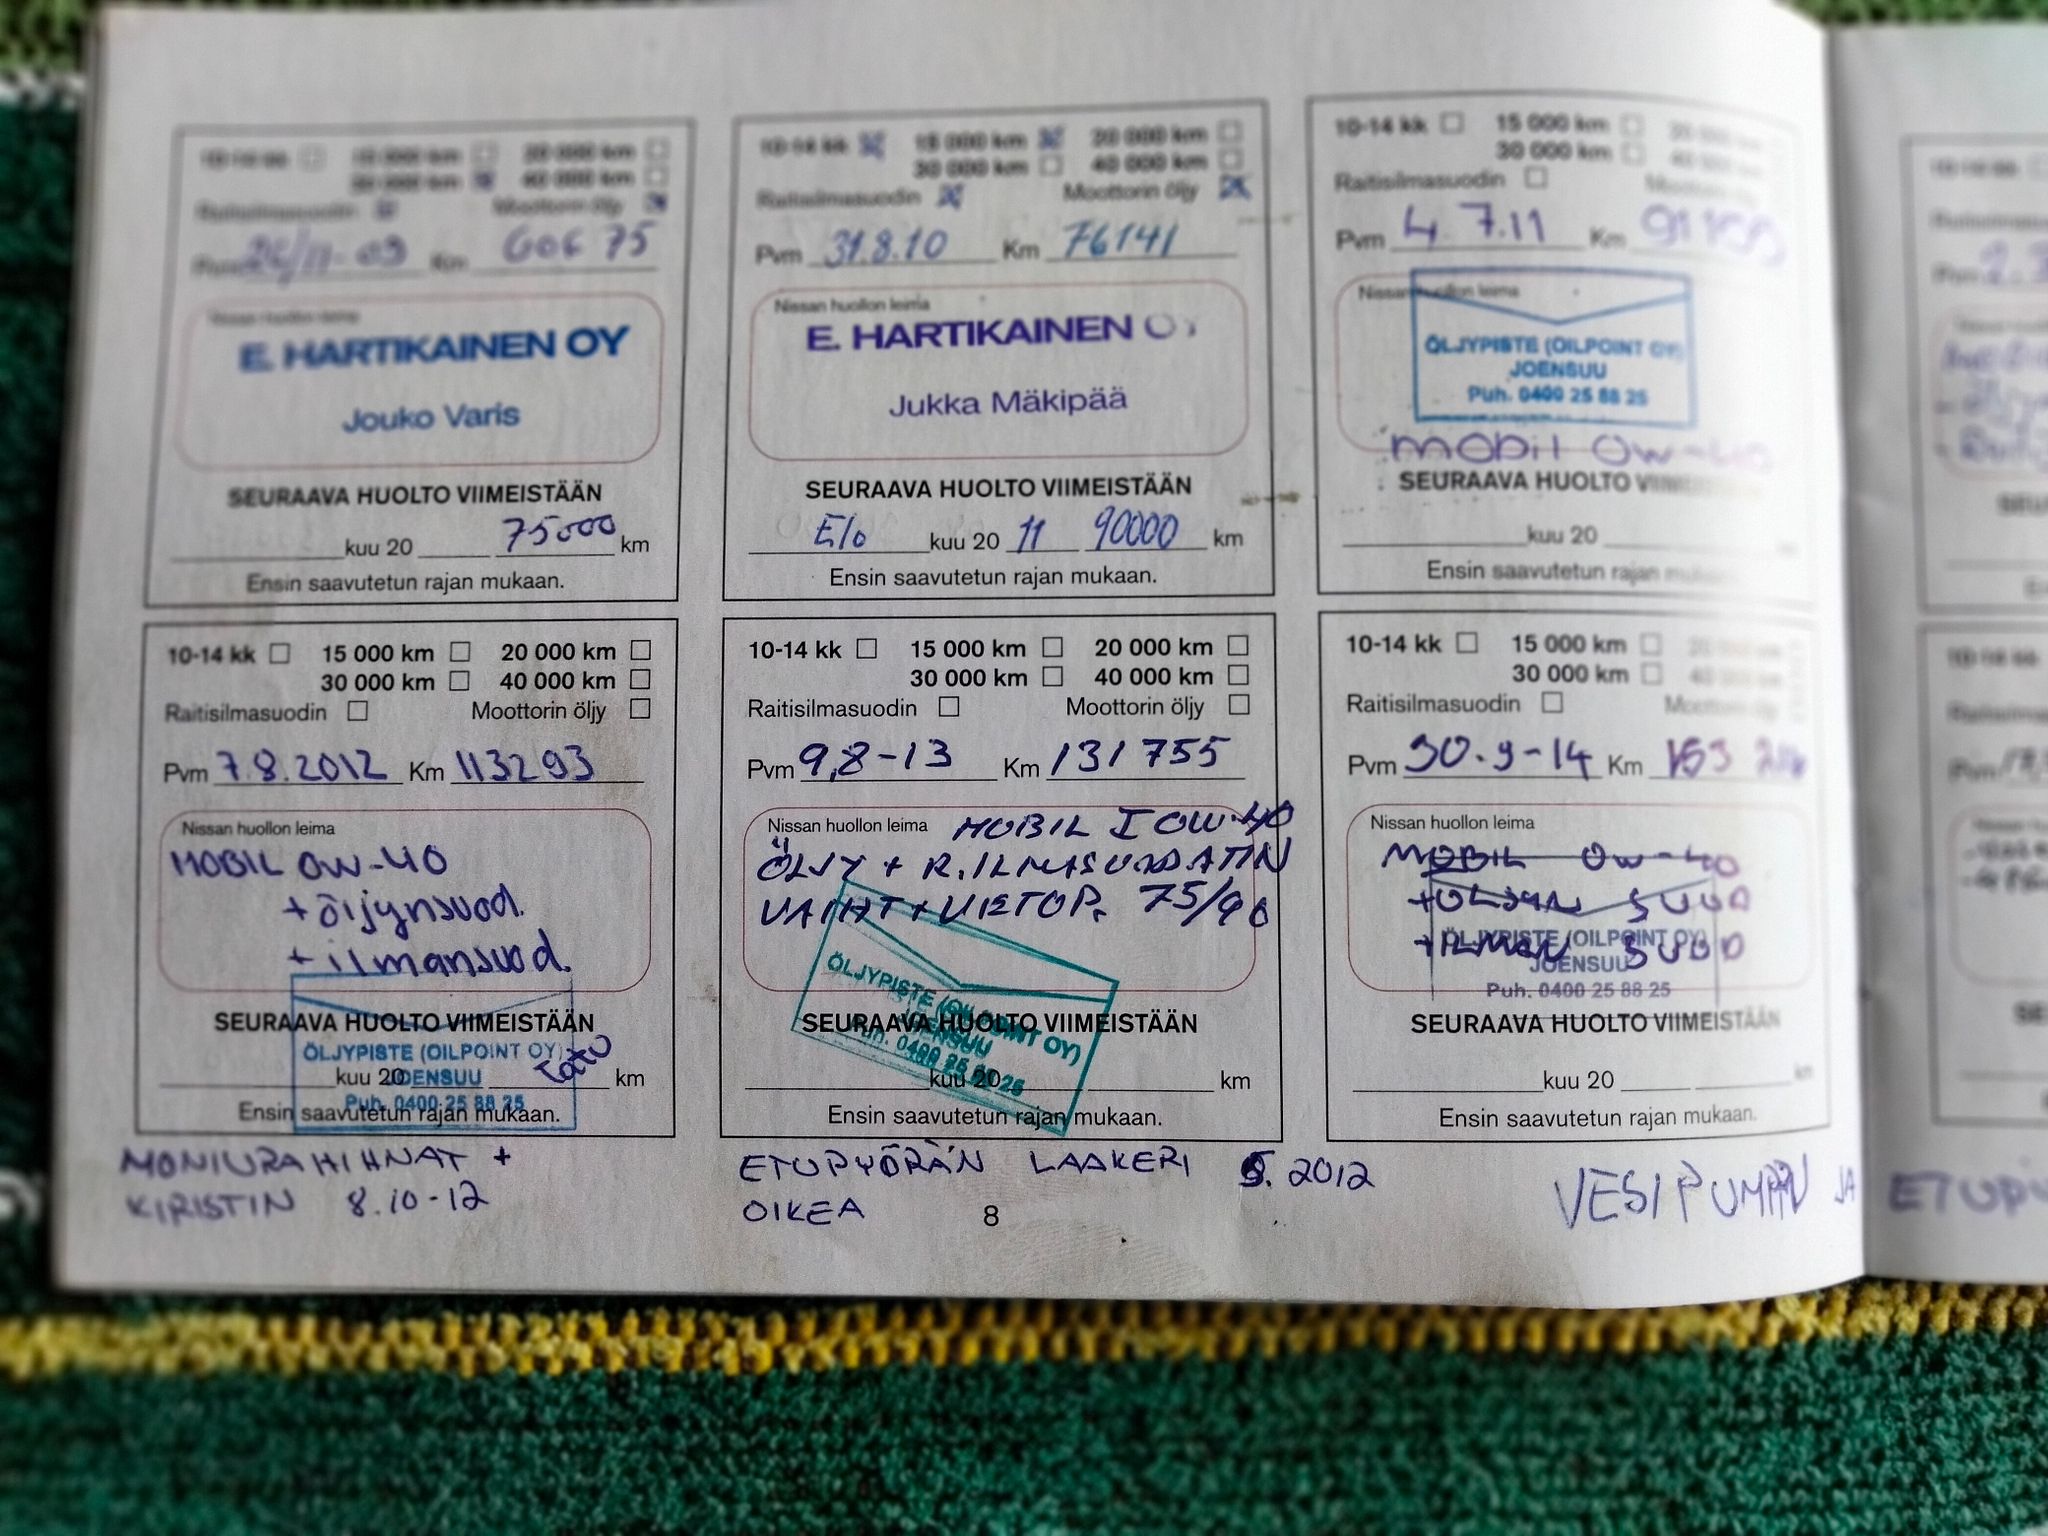 10-14 kk 15 000 km 20 000 km
30 000 km 40 000 km
Raitisilmasuodin Moottorin öljy
Pvm Km 60675
Nissan huollon leima
E. HARTIKAINEN OY
Jouko Varis
SEURAAVA HUOLTO VIIMEISTÄÄN
kuu 20 75000 km
Ensin saavutetun rajan mukaan.
10-14 kk 15 000 km 20 000 km
30 000 km 40 000 km
Raitisilmasuodin Moottorin öljy
Pvm 31.8.10 Km 76141
Nissan huollon leima
E. HARTIKAINEN OY
Jukka Mäkipää
SEURAAVA HUOLTO VIIMEISTÄÄN
Elo kuu 20 11 90000 km
Ensin saavutetun rajan mukaan.
10-14 kk 15 000 km
30 000 km
Raitisilmasuodin
Pvm 4.7.11 Km
Nissan huollon leima
ÖLJYPISTE (OILPOINT OY)
JOENSUU
Puh. 0400 25 88 25
Mobil 0W-40
SEURAAVA HUOLTO
kuu 20
Ensin saavutetun rajan
10-14 kk 15 000 km 20 000 km
30 000 km 40 000 km
Raitisilmasuodin Moottorin öljy
Pvm 7.8.2012 Km 113293
Nissan huollon leima
MOBIL 0W-40
+ öljynsuod.
+ ilmansuod.
SEURAAVA HUOLTO VIIMEISTÄÄN
ÖLJYPISTE (OILPOINT OY)
kuu 20 km
JOENSUU
Puh. 0400 25 88 25
Ensin saavutetun rajan mukaan.
MONIURAHIHNAT +
KIRISTIN 8.10-12
10-14 kk 15 000 km 20 000 km
30 000 km 40 000 km
Raitisilmasuodin Moottorin öljy
Pvm 9,8-13 Km 131755
Nissan huollon leima MOBIL I 0W-40
ÖLJY + R.ILMASUODATIN
VAIHT + VETOP. 75/90
ÖLJYPISTE (OILPOINT OY)
JOENSUU
Puh. 0400 25 88 25
SEURAAVA HUOLTO VIIMEISTÄÄN
kuu 20 km
Ensin saavutetun rajan mukaan.
ETUPYÖRÄN LAAKERI 5. 2012
OIKEA
8
10-14 kk 15 000 km
30 000 km
Raitisilmasuodin
Pvm 30.9-14 Km 153
Nissan huollon leima
MOBIL 0W-40
+ÖLJYN SUOD
+ILMAN SUOD
ÖLJYPISTE (OILPOINT OY)
JOENSUU
Puh. 0400 25 88 25
SEURAAVA HUOLTO VIIMEISTÄÄN
kuu 20 km
Ensin saavutetun rajan mukaan.
VESIPUMPPU JA